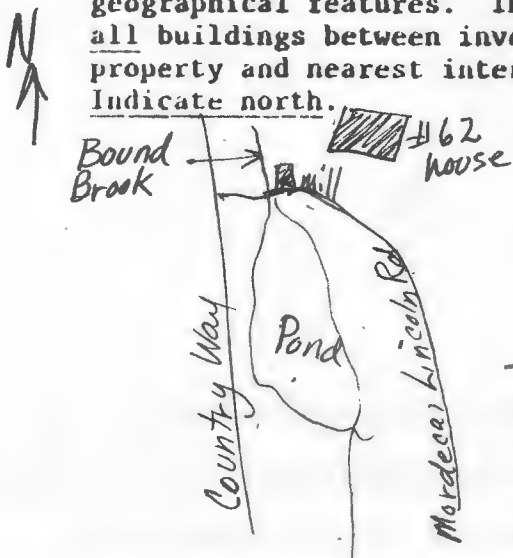 N
geographical features.
all buildings between
property and nearest
Indicate north.
#62
house
Bound
Brook
mill
Pond
Country Way
Mordecai Lincoln Rd